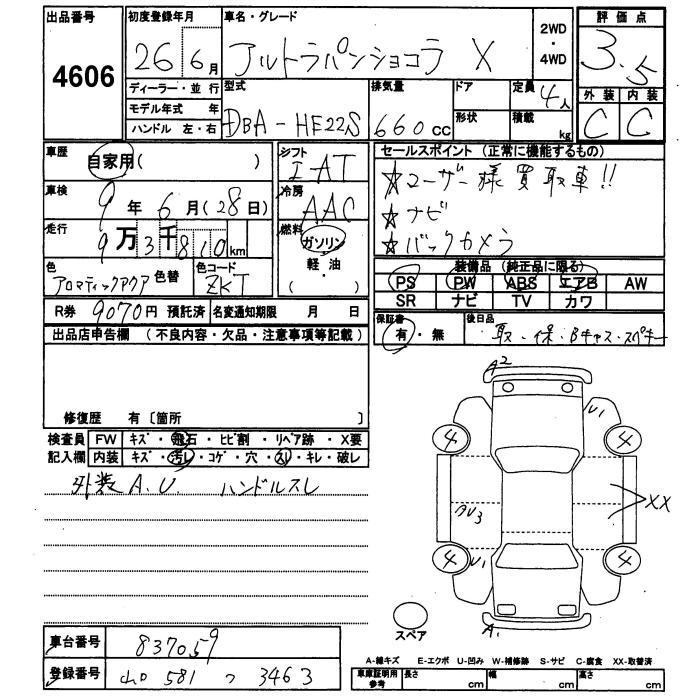 出品番号 初度登録年月 車名・グレード 2WD・4WD 評価点
4606 26 6月 アルトラパンショコラ X 3.5
ディーラー・並 行 型式 排気量 ドア 定員 4人 外装 内装
モデル年式 年 DBA-HE22S 660cc 形状 積載 kg C C
ハンドル 左・右
車歴 自家用( ) シフト IAT セールスポイント(正常に機能するもの)
☆ユーザー様買取車!!
車検 9年 6月(28日) 冷房 AAC ☆ナビ
走行 9万3千810km 燃料 ガソリン ☆バックカメラ
軽・油
色 アロマティックアクア 色替 色コード ZKT 装備品(純正品に限る)
PS PW ABS エアB AW
SR ナビ TV カワ
R券 9070円 預託済 名変通知期限 月 日
保証書 有・無 後日品 取・保・Bキャス・スペキー
出品店申告欄(不良内容・欠品・注意事項等記載)
修復歴 有〔箇所 〕
検査員 FW キズ・飛石・ヒビ割・リペア跡・X要
記入欄 内装 キズ・汚レ・コゲ・穴・スレ・キレ・破レ
外装A.U. ハンドルスレ
A2
U1
4 4
AU3 XX
4 U1 4
スペア A1
車台番号 837059
登録番号 581 つ 3463
A-線キズ E-エクボ U-凹み W-補修跡 S-サビ C-腐食 XX-取替済
車庫証明用参考 長さ cm 幅 cm 高さ cm